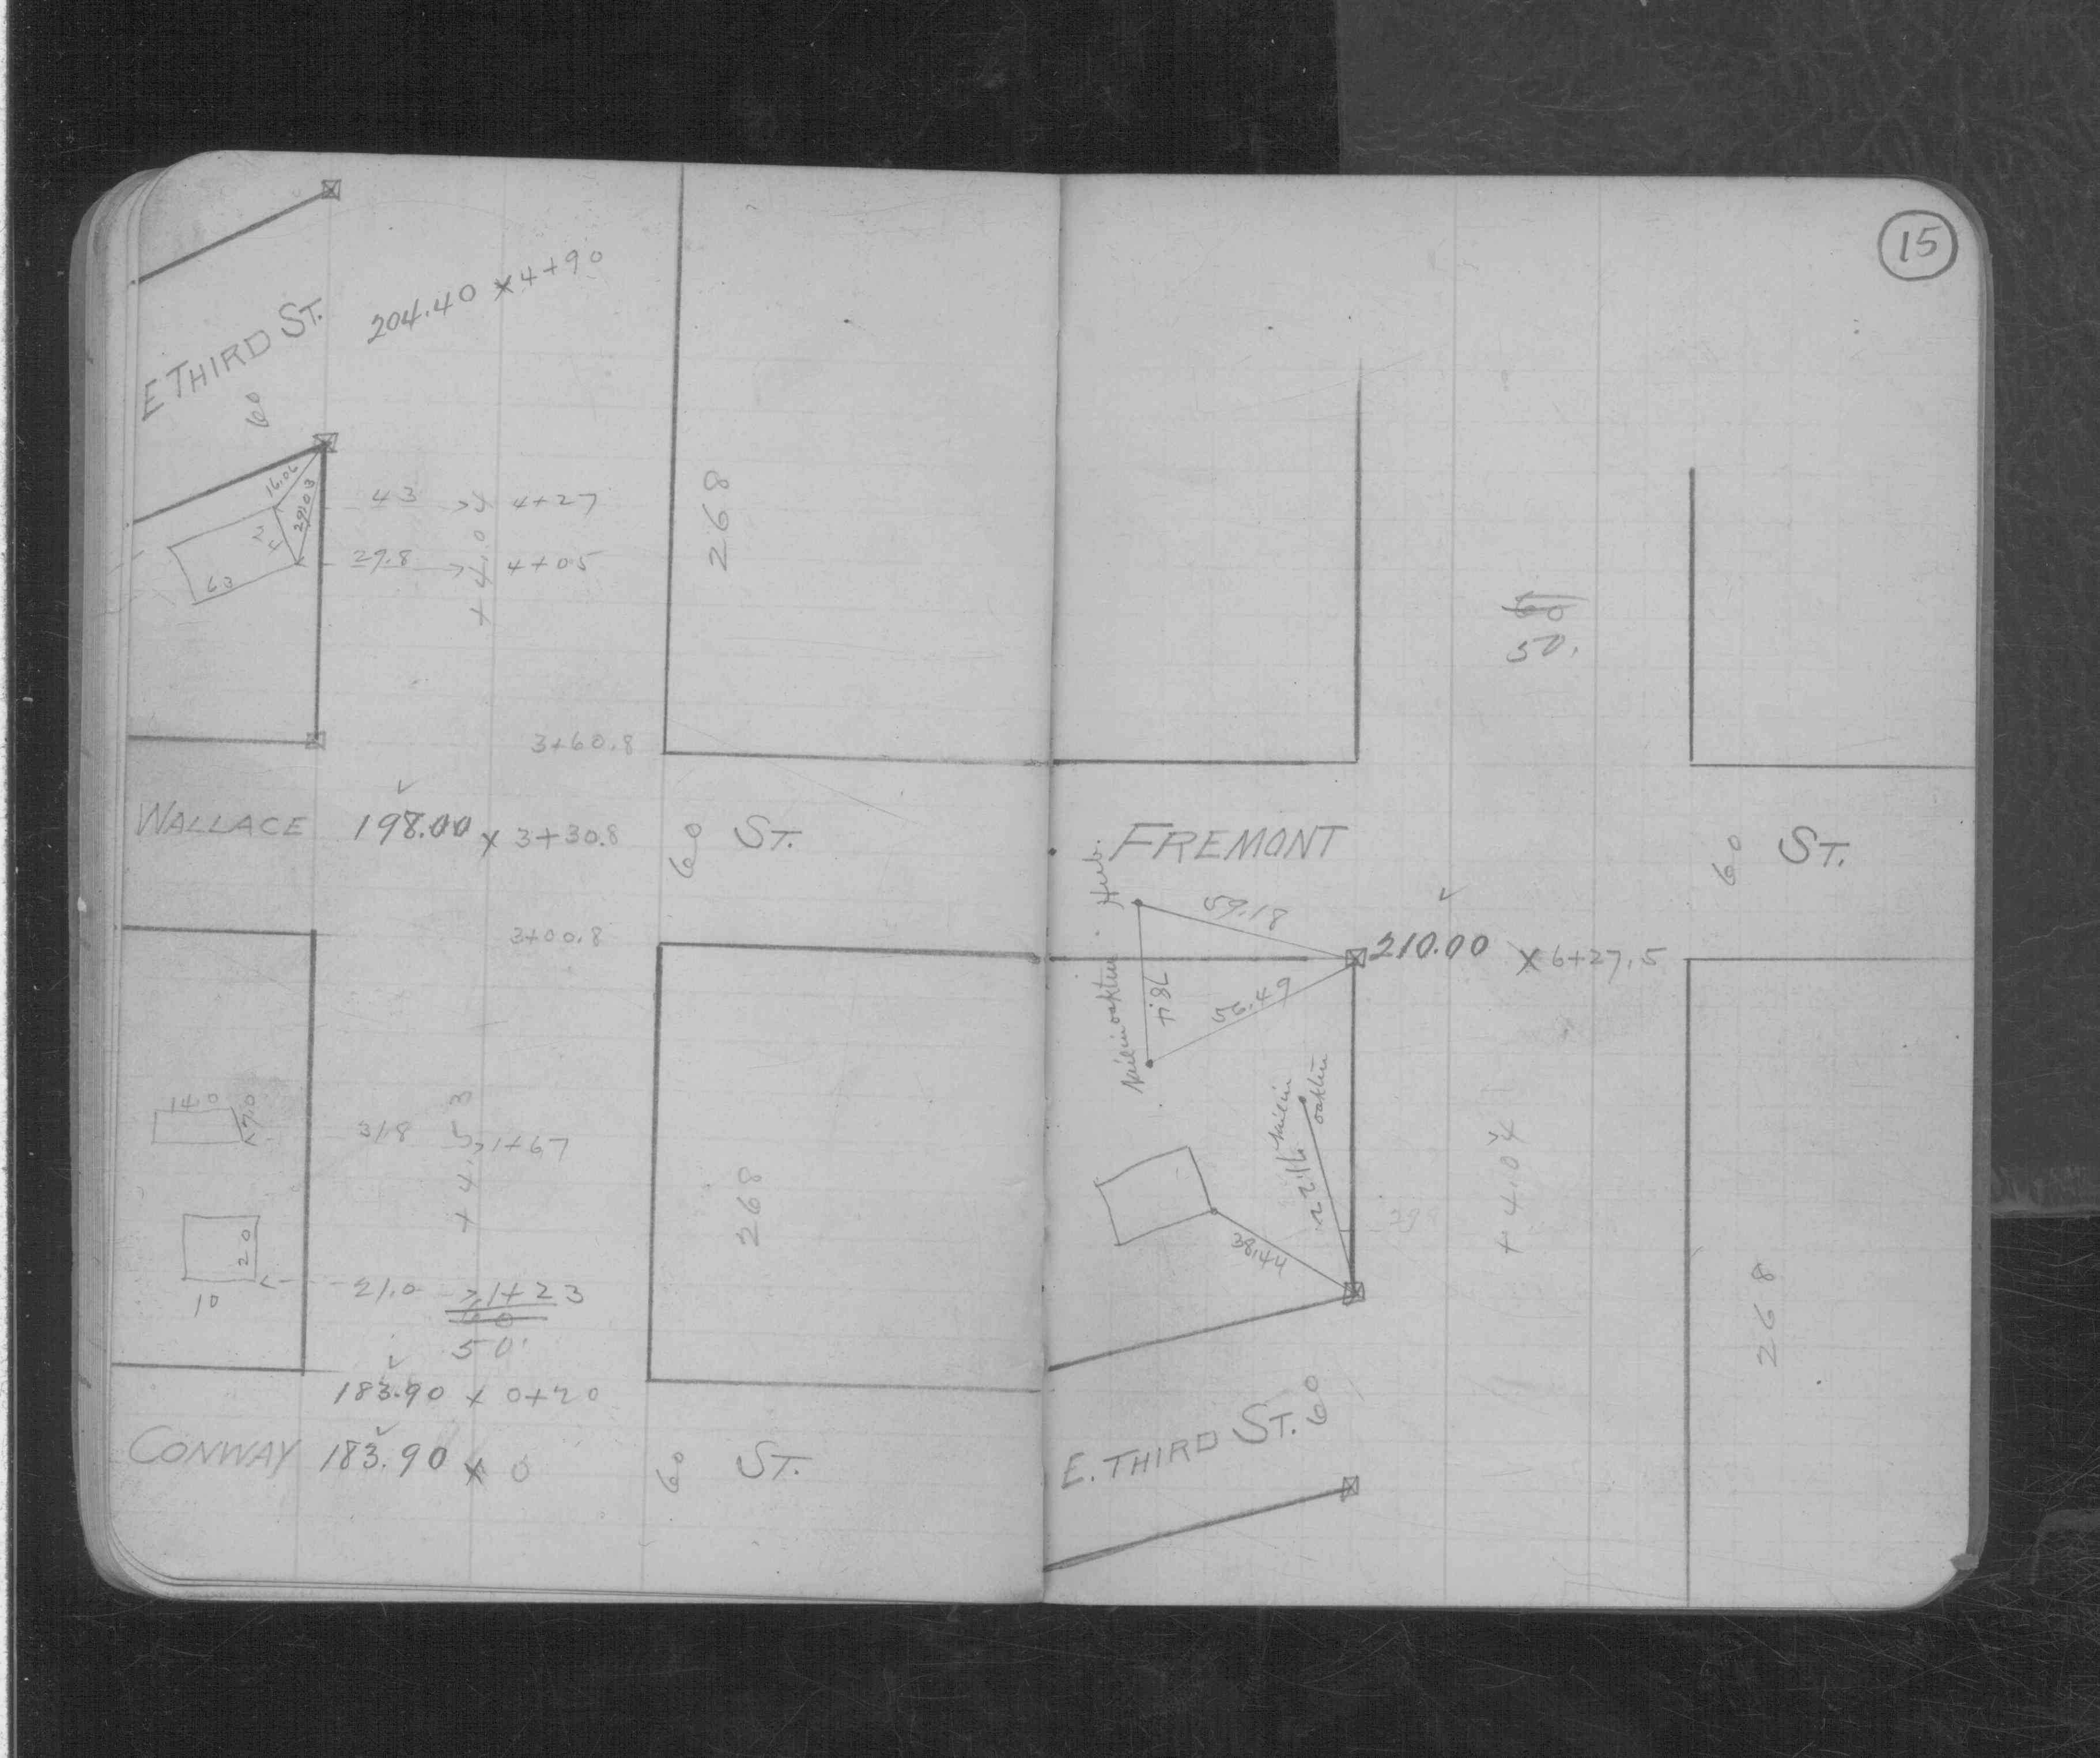 E THIRD ST.
204.40 x 4+90
60
16.06
29.03
43 4+27
29.8 4+05
+4.0
63
268
3+60.8
WALLACE 198.00 x 3+30.8 60 ST.
3+00.8
14.0
7.0
31.8 1+67
+4.53
20
10
21.0 1+23
60
50'
268
183.90 x 0+20
CONWAY 183.90 x 0 60 ST.
15
60
50.
FREMONT 60 ST.
Hub.
59.18
210.00 x 6+27.5
56.49
38.44
+4.04
268
E. THIRD ST. 60